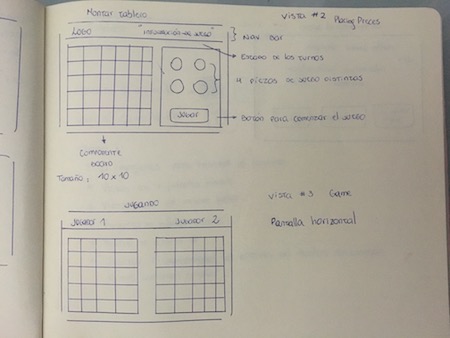 Montar tablero
vista #2 Placing Pieces
LOGO "INFORMACIÓN DEL JUEGO"
Nav bar
Estado de los turnos
4 piezas de juego distintas
JUGAR
Boton para comenzar el juego
Componente
board
Tamaño: 10x10
vista #3 Game
JUGANDO
JUGADOR 1
JUGADOR 2
Pantalla horizontal